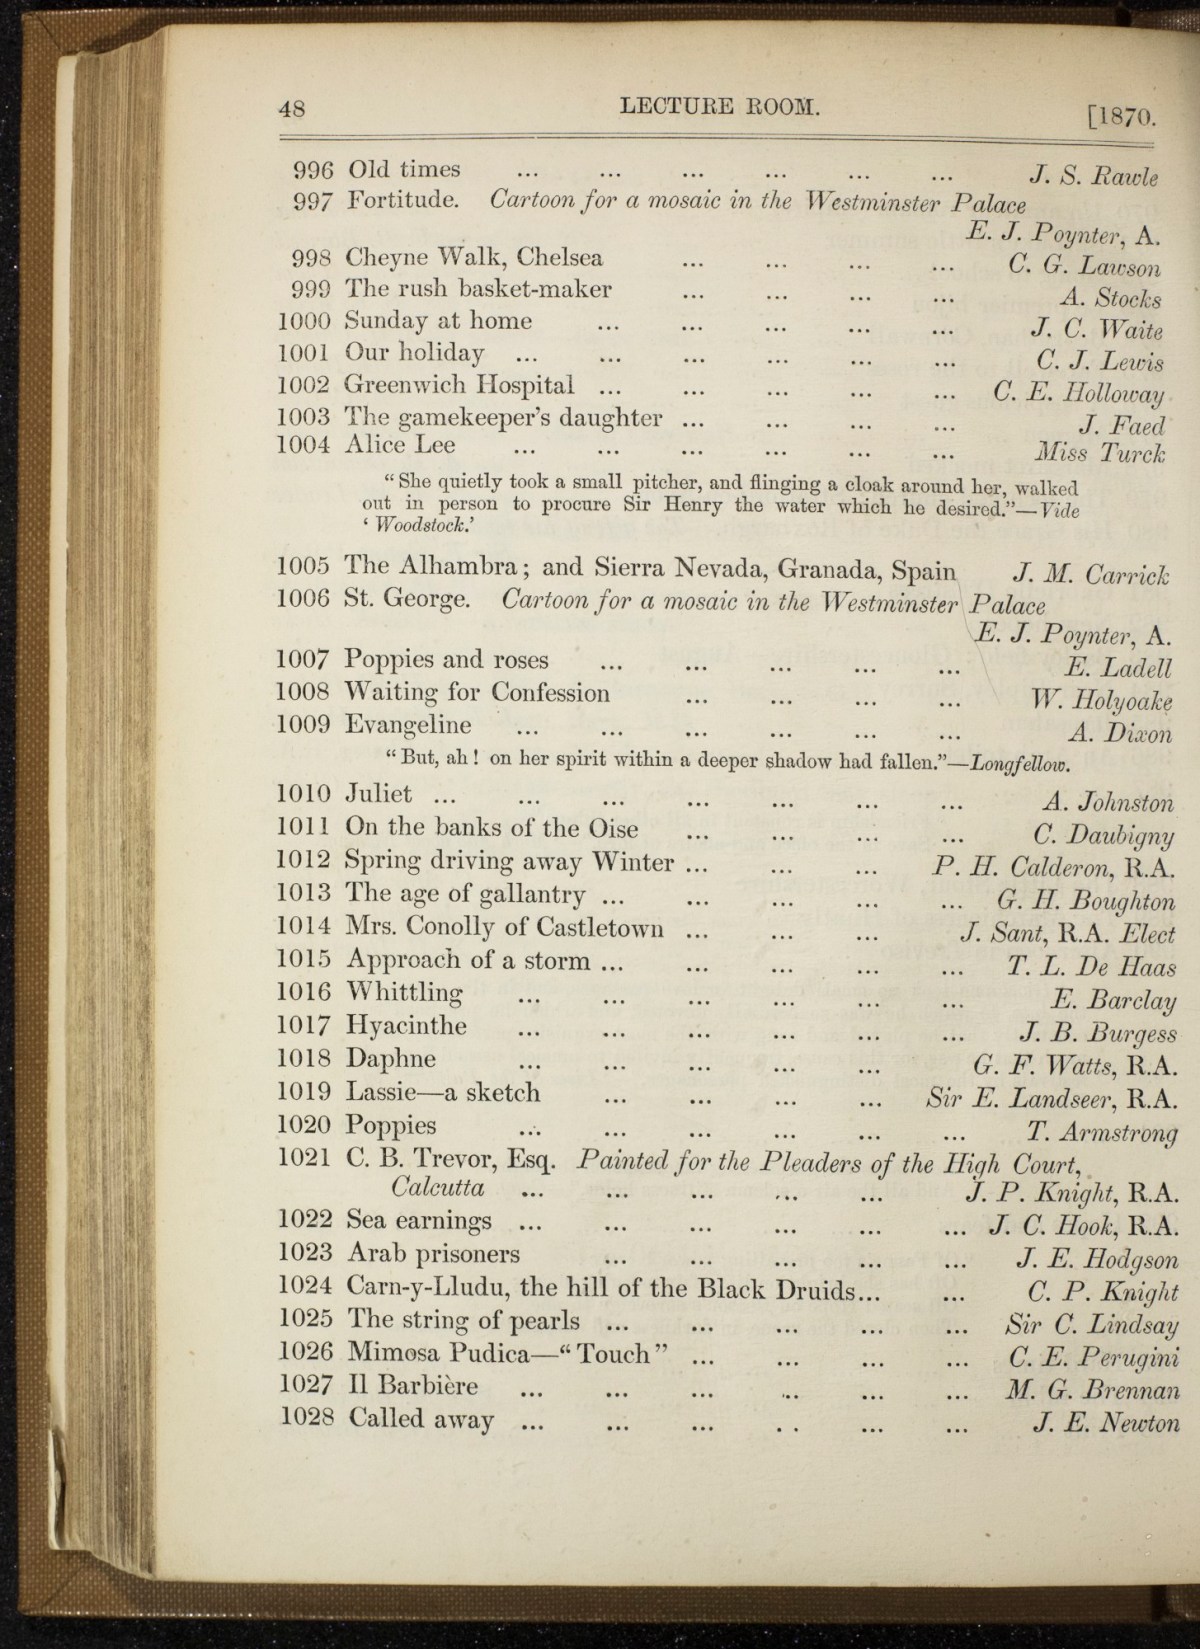 48 LECTURE ROOM. [1870.
996 Old times ... ... ... ... ... ... J. S. Rawle
997 Fortitude. Cartoon for a mosaic in the Westminster Palace
E. J. Poynter, A.
998 Cheyne Walk, Chelsea ... ... ... ... C. G. Lawson
999 The rush basket-maker ... ... ... ... A. Stocks
1000 Sunday at home ... ... ... ... ... J. C. Waite
1001 Our holiday ... ... ... ... ... ... C. J. Lewis
1002 Greenwich Hospital ... ... ... ... ... C. E. Holloway
1003 The gamekeeper's daughter ... ... ... ... J. Faed
1004 Alice Lee ... ... ... ... ... ... Miss Turck
“She quietly took a small pitcher, and flinging a cloak around her, walked
out in person to procure Sir Henry the water which he desired.”—Vide
‘Woodstock.’
1005 The Alhambra; and Sierra Nevada, Granada, Spain J. M. Carrick
1006 St. George. Cartoon for a mosaic in the Westminster Palace
E. J. Poynter, A.
1007 Poppies and roses ... ... ... ... ... E. Ladell
1008 Waiting for Confession ... ... ... ... W. Holyoake
1009 Evangeline ... ... ... ... ... ... A. Dixon
“But, ah! on her spirit within a deeper shadow had fallen.”—Longfellow.
1010 Juliet ... ... ... ... ... ... ... A. Johnston
1011 On the banks of the Oise ... ... ... ... C. Daubigny
1012 Spring driving away Winter ... ... ... P. H. Calderon, R.A.
1013 The age of gallantry ... ... ... ... ... G. H. Boughton
1014 Mrs. Conolly of Castletown ... ... ... J. Sant, R.A. Elect
1015 Approach of a storm ... ... ... ... ... T. L. De Haas
1016 Whittling ... ... ... ... ... ... E. Barclay
1017 Hyacinthe ... ... ... ... ... ... J. B. Burgess
1018 Daphne ... ... ... ... ... G. F. Watts, R.A.
1019 Lassie—a sketch ... ... ... ... Sir E. Landseer, R.A.
1020 Poppies ... ... ... ... ... ... T. Armstrong
1021 C. B. Trevor, Esq. Painted for the Pleaders of the High Court,
Calcutta ... ... ... ... ... J. P. Knight, R.A.
1022 Sea earnings ... ... ... ... ... ... J. C. Hook, R.A.
1023 Arab prisoners ... ... ... ... ... J. E. Hodgson
1024 Carn-y-Lludu, the hill of the Black Druids... ... C. P. Knight
1025 The string of pearls ... ... ... ... ... Sir C. Lindsay
1026 Mimosa Pudica—“Touch” ... ... ... ... C. E. Perugini
1027 Il Barbière ... ... ... ... ... ... M. G. Brennan
1028 Called away ... ... ... . . ... ... J. E. Newton